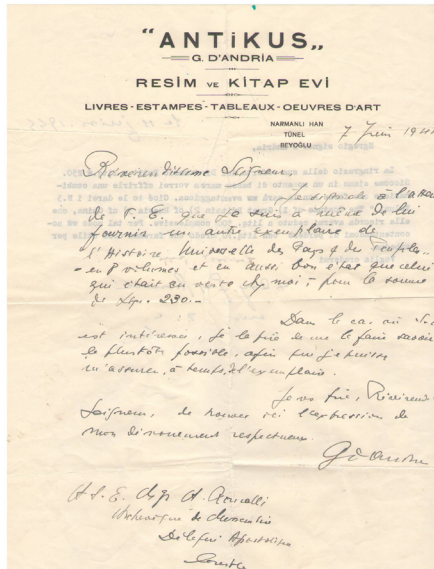 "ANTiKUS„
G. D'ANDRIA
RESIM VE KiTAP EVi
LIVRES - ESTAMPES - TABLEAUX - OEUVRES D'ART
NARMANLI HAN
TÜNEL
BEYOĞLU
7 Juin
Seigneur
signale à
de S. E. que je suis à même de lui
fournir un autre exemplaire de
l'Histoire Universelle des Pays & des Peuples
en 8 volumes et en aussi bon état que celui
qui était en vente chez moi - pour la somme
de Ltq. 230.-
Dans le cas où S. E.
est intéressée, je le prie de me le faire savoir
le plus tôt possible, afin que je puisse
m'assurer, à temps, l'exemplaire.
Je vous prie,
Seigneur, de trouver ici l'expression de
mon dévouement respectueux.
A S. E. Mgr A. Roncalli
Archevêque de
Délégué Apostolique